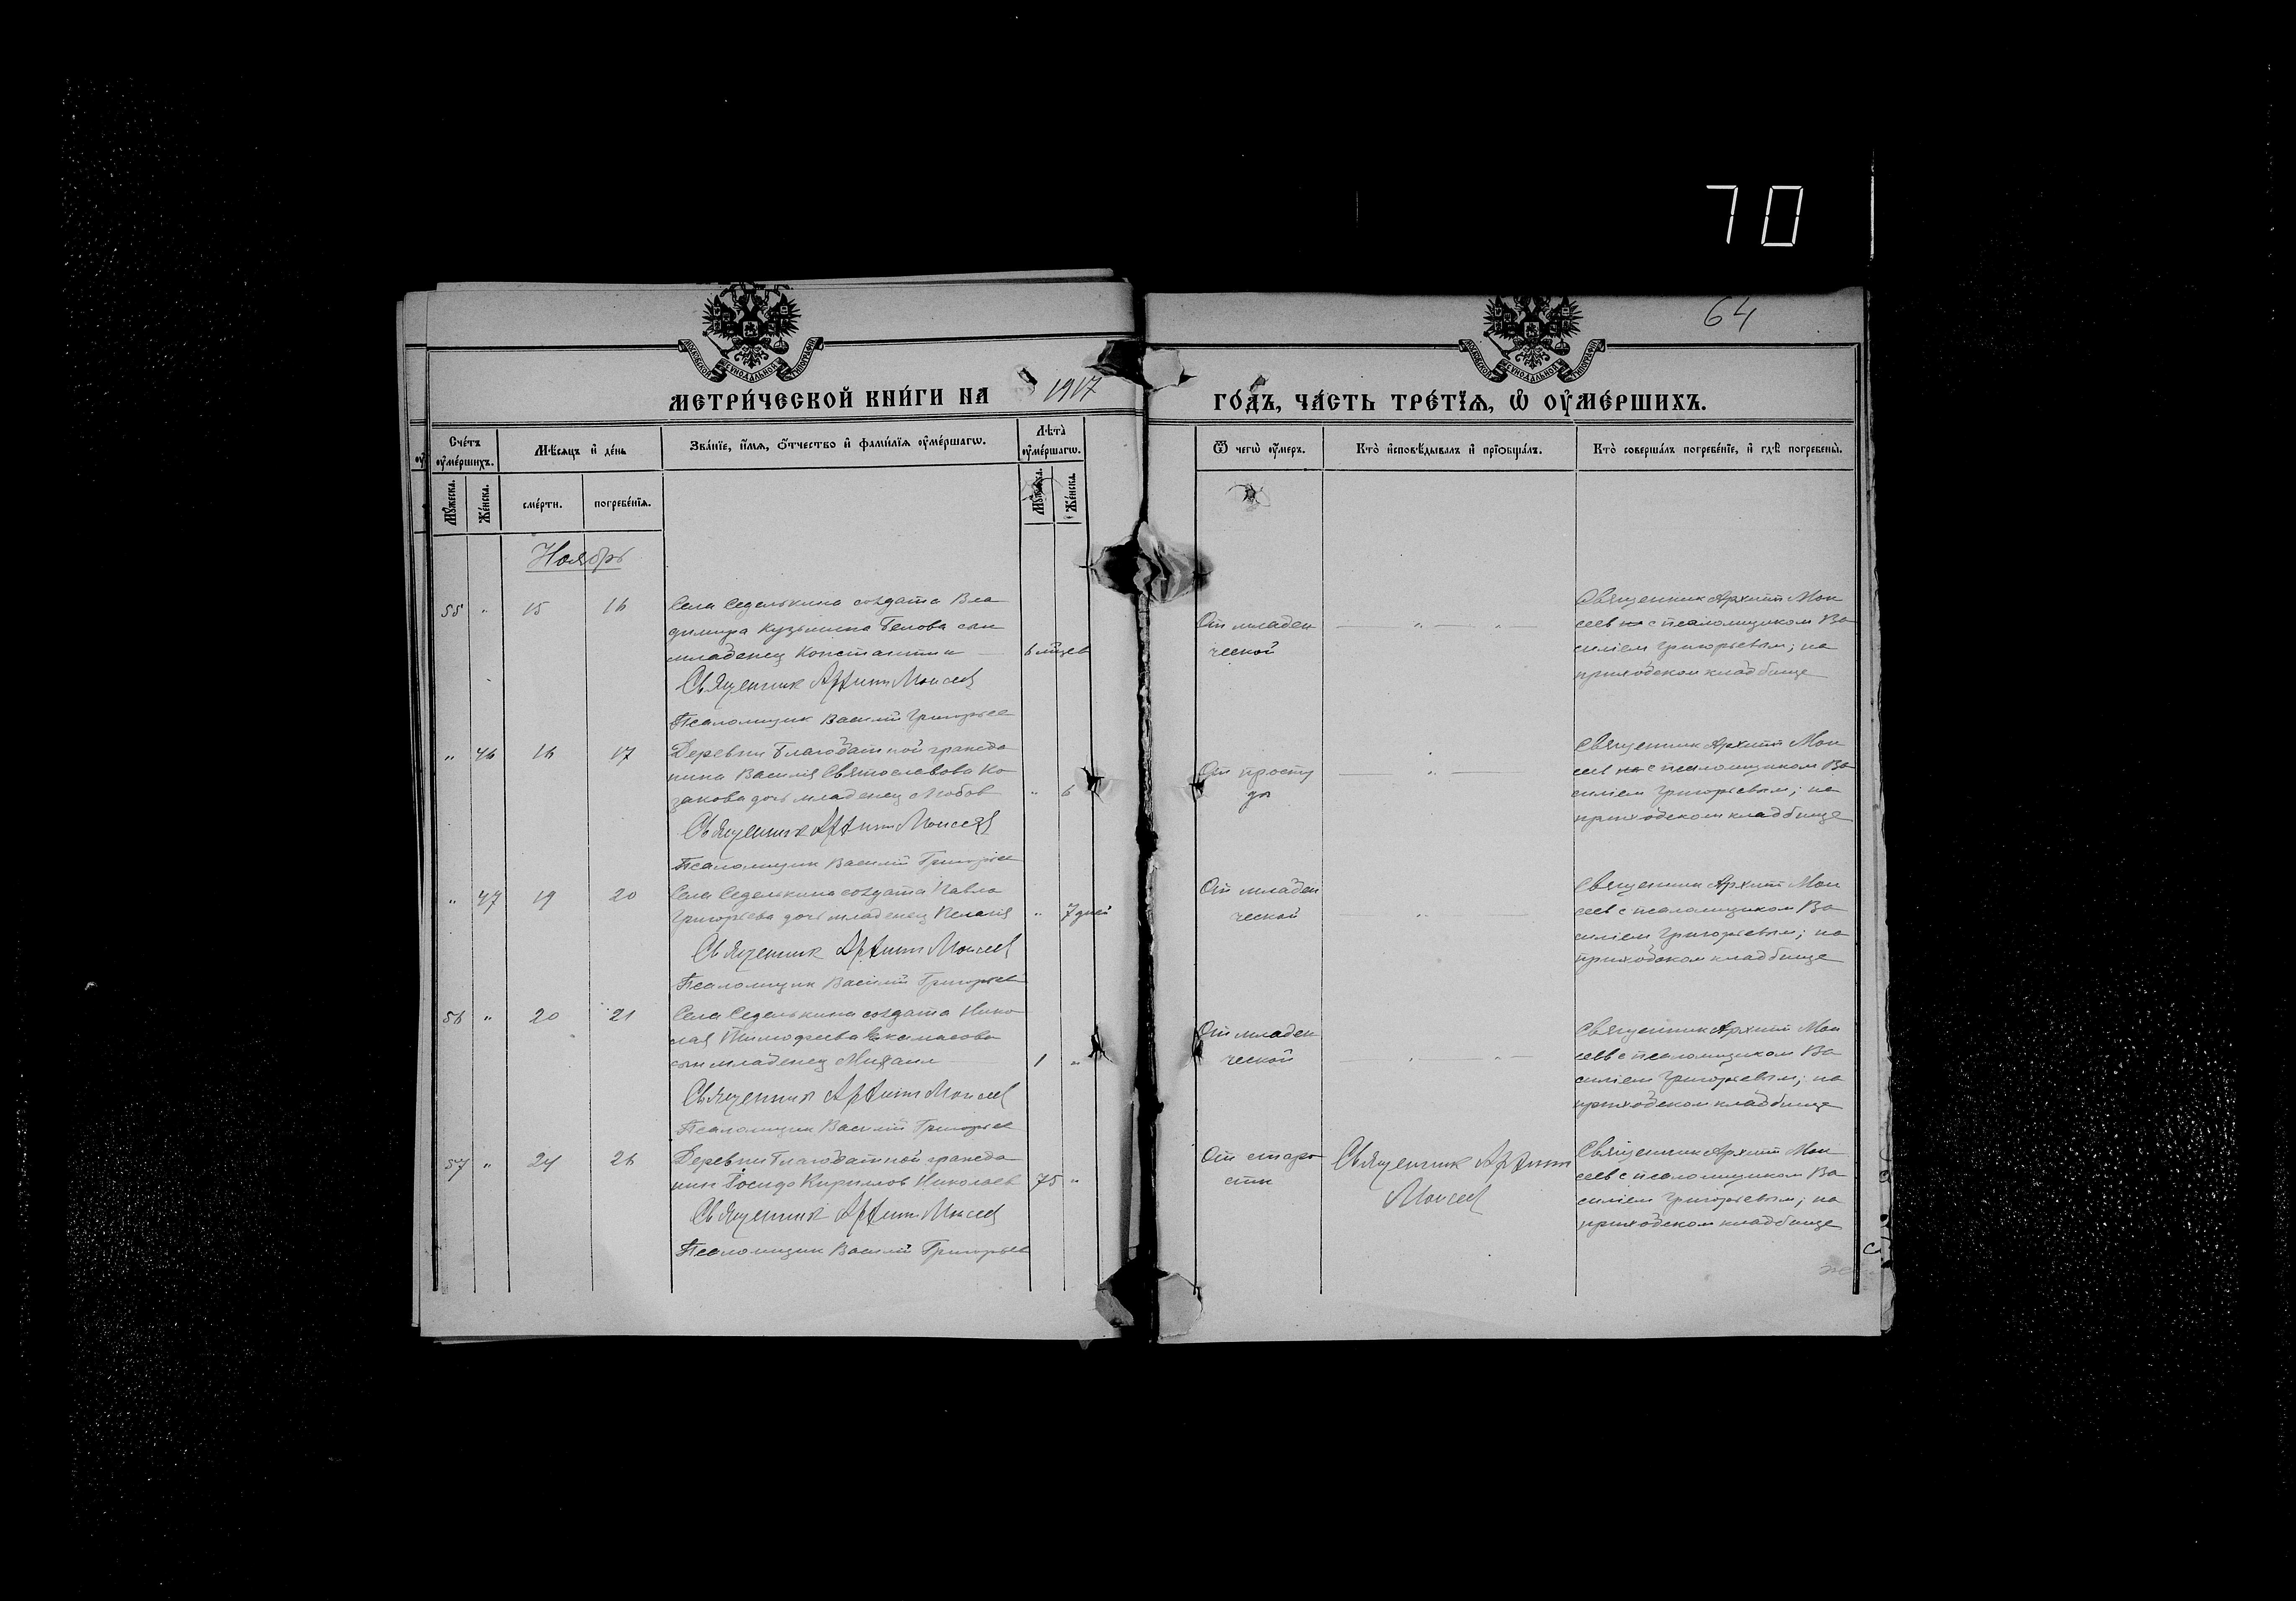 70
64
МОСКОВСКОЙ СѴНОДАЛЬНОЙ ТИПОГРАФІИ
МОСКОВСКОЙ СѴНОДАЛЬНОЙ ТИПОГРАФІИ
МЕТРИ́ЧЕСКОЙ КНИ́ГИ НА 1917
ГО́ДЪ, ЧА́СТЬ ТРЕ́ТЇѦ, Ѽ ОУ҆МЕ́РШИХЪ.
Сче́тъ оу҆ме́ршихъ.
Мѣ́сяцъ и҆ де́нь
Зва́нїе, и҆́мѧ, ѻ҆́тчество и҆ фами́лїѧ оу҆ме́ршагѡ.
Лѣ́та оу҆ме́ршагѡ.
Ѿ чегѡ̀ оу҆́меръ.
Кто̀ и҆сповѣ́дывалъ и҆ прїѡбща́лъ.
Кто̀ соверша́лъ погребе́нїе, и҆ гдѣ̀ погребены̀.
Мꙋ́жеска.
Же́нска.
сме́рти.
погребе́нїѧ.
Мꙋ́жеска.
Же́нска.
Ноябрь
55 " 15 16
Села Седелькина солдата Вла
димира Кузьмина Белова сын
младенец Константин
6 мцев
Священник Архипп Моисеев
Псаломщик Василий Григорьев
От младен
ческой
Священник Архипп Мои
сеев с псаломщиком Ва
силием Григорьевым; на
приходском кладбище
" 46 16 17
Деревни Благодатной гражда
нина Василия Святославова Ко
закова дочь младенец Любов
" 6
Священник Архипп Моисеев
Псаломщик Василий Григорьев
От просту
ды
Священник Архипп Мои
сеев с псаломщиком Ва
силием Григорьевым; на
приходском кладбище
" 47 19 20
Села Седелькина солдата Павла
Григорьева дочь младенец Пелагия
" 7 дней
Священник Архипп Моисеев
Псаломщик Василий Григорьев
От младен
ческой
Священник Архипп Мои
сеев с псаломщиком Ва
силием Григорьевым; на
приходском кладбище
56 " 20 21
Села Седелькина солдата Нико
лая Тимофеева
сын младенец Михаил
1 "
Священник Архипп Моисеев
Псаломщик Василий Григорьев
От младен
ческой
Священник Архипп Мои
сеев с псаломщиком Ва
силием Григорьевым; на
приходском кладбище
57 " 24 26
Деревни Благодатной гражда
нин Кириллов Николаев
75 "
Священник Архипп Моисеев
Псаломщик Василий Григорьев
От старо
сти
Священник Архипп
Моисеев
Священник Архипп Мои
сеев с псаломщиком Ва
силием Григорьевым; на
приходском кладбище